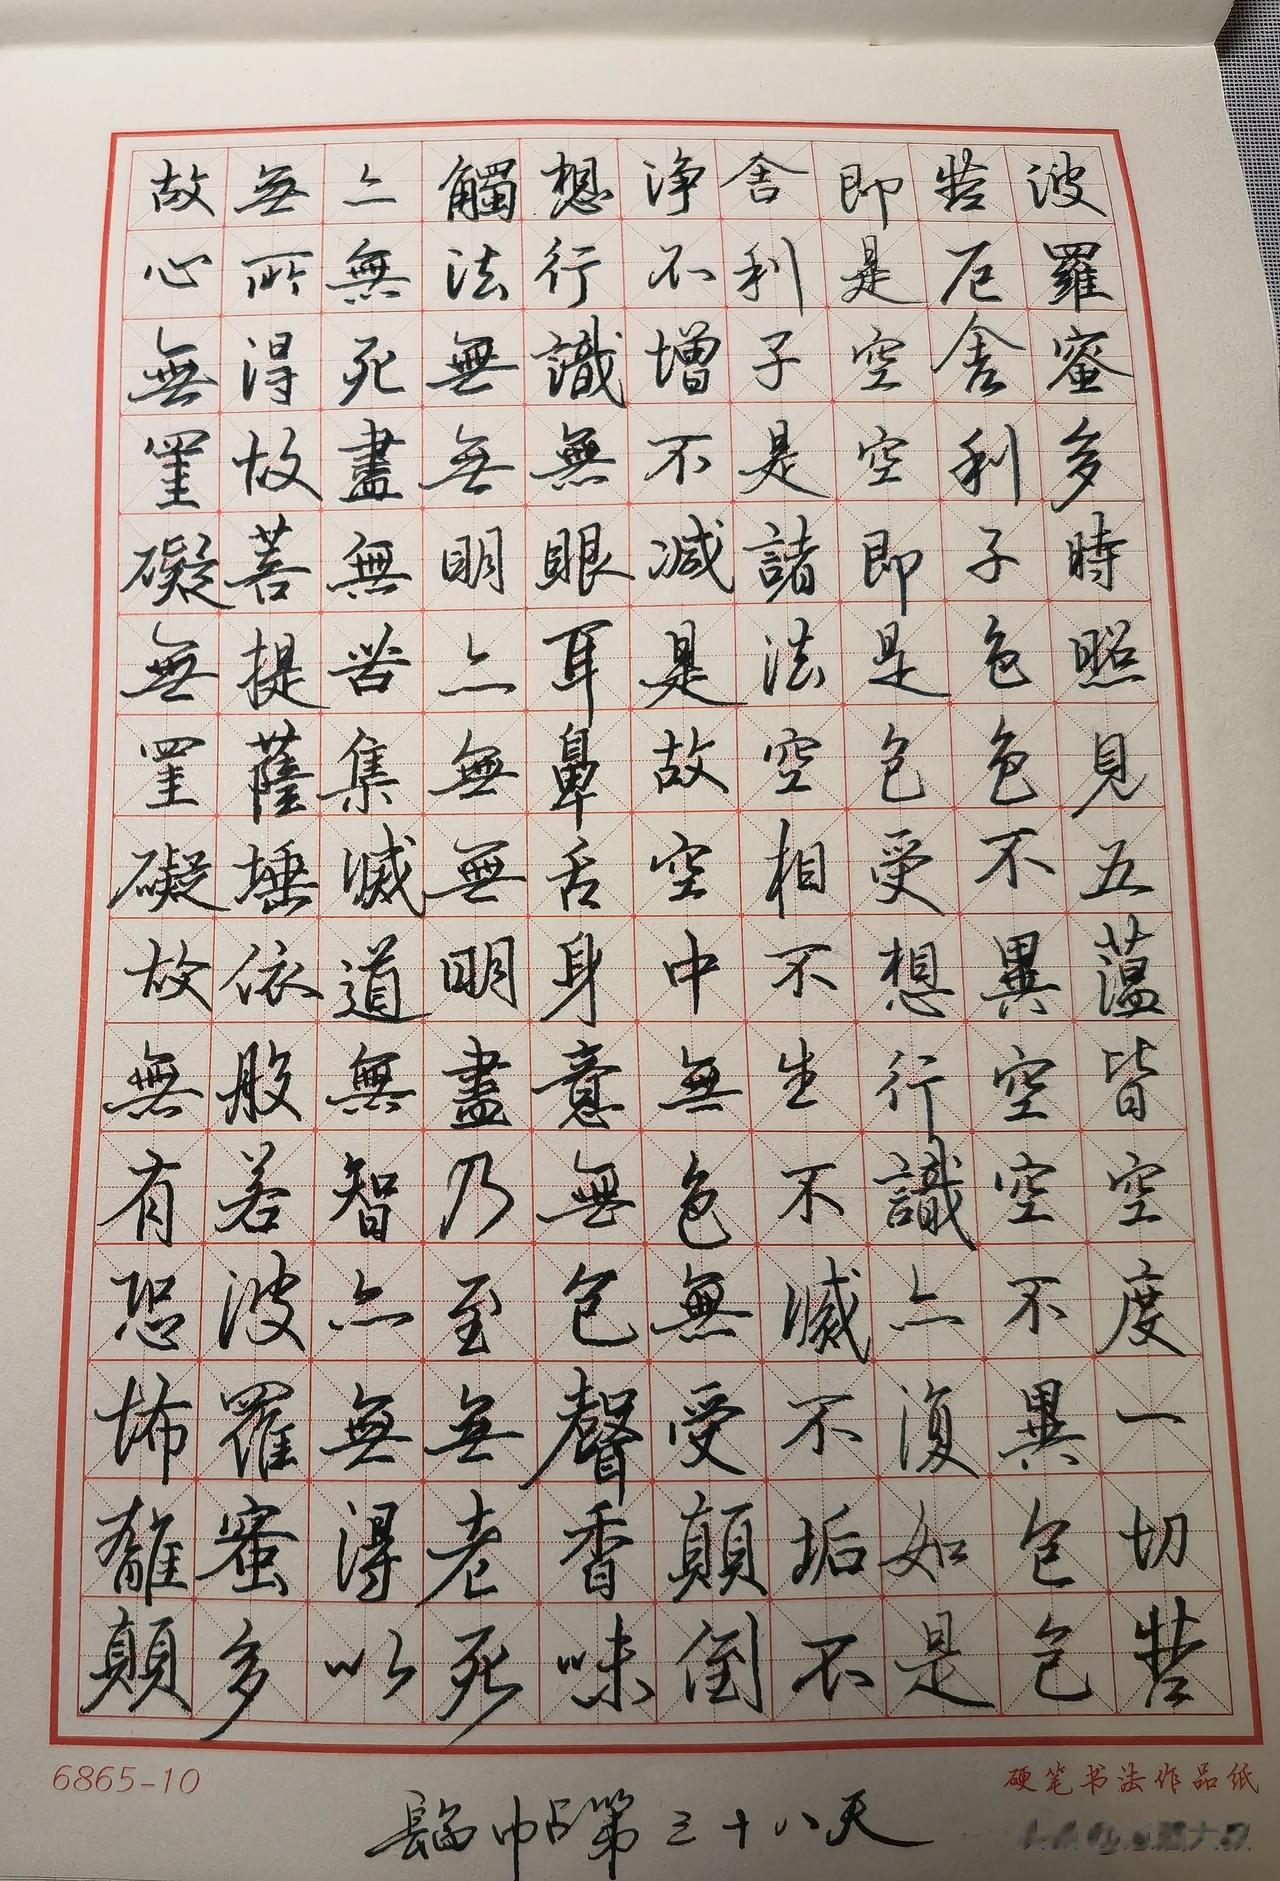 波羅蜜多時照見五蘊皆空度一切苦
苦厄舍利子色色不異空空不異色色
即是空空即是色受想行識亦復如是
舍利子是諸法空相不生不滅不垢不
净不增不减是故空中無色無受顛倒
想行識無眼耳鼻舌身意無色聲香味
觸法無無明亦無無明盡乃至無老死
亦無死盡無苦集滅道無智亦無得以
無所得故菩提薩埵依般若波羅蜜多
故心無罣礙無罣礙故無有恐怖離顛
6865-10
硬笔书法作品纸
臨帖第三十八天